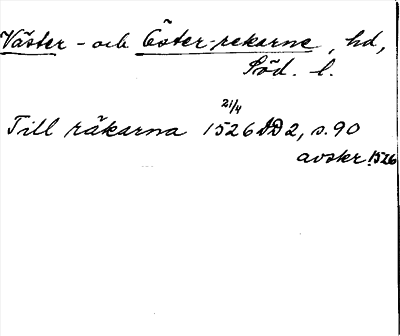 Väster- och Öster-rekarne, hd,
Söd. l.
21/4
Till räkarna 1526 DD 2, s. 90
avskr. 1526